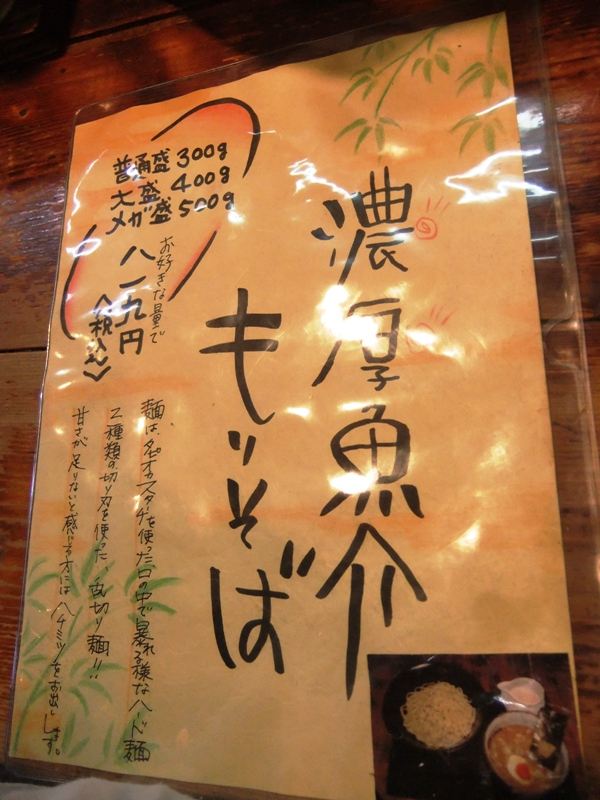 濃厚魚介
もりそば
普通盛 300g
大盛 400g
メガ盛 500g
お好きな量で
八一九円
〈税込〉
麺は、タピオカスターチを使った、口の中で暴れる様なハード麺
2種類の切り刃を使った、乱切り麺!!
甘さが足りないと感じる方にはハチミツをお出しします。